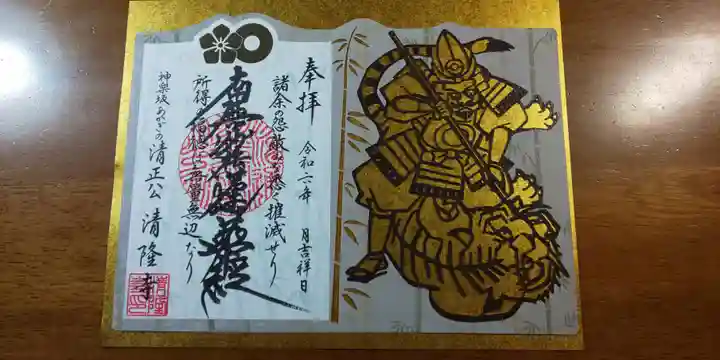 奉拝
令和六年 月吉祥日
諸余の怨敵皆悉く摧滅せり
南無妙法蓮華経
所得の福徳は無量無辺なり
神楽坂あかぎの清正公 清隆寺